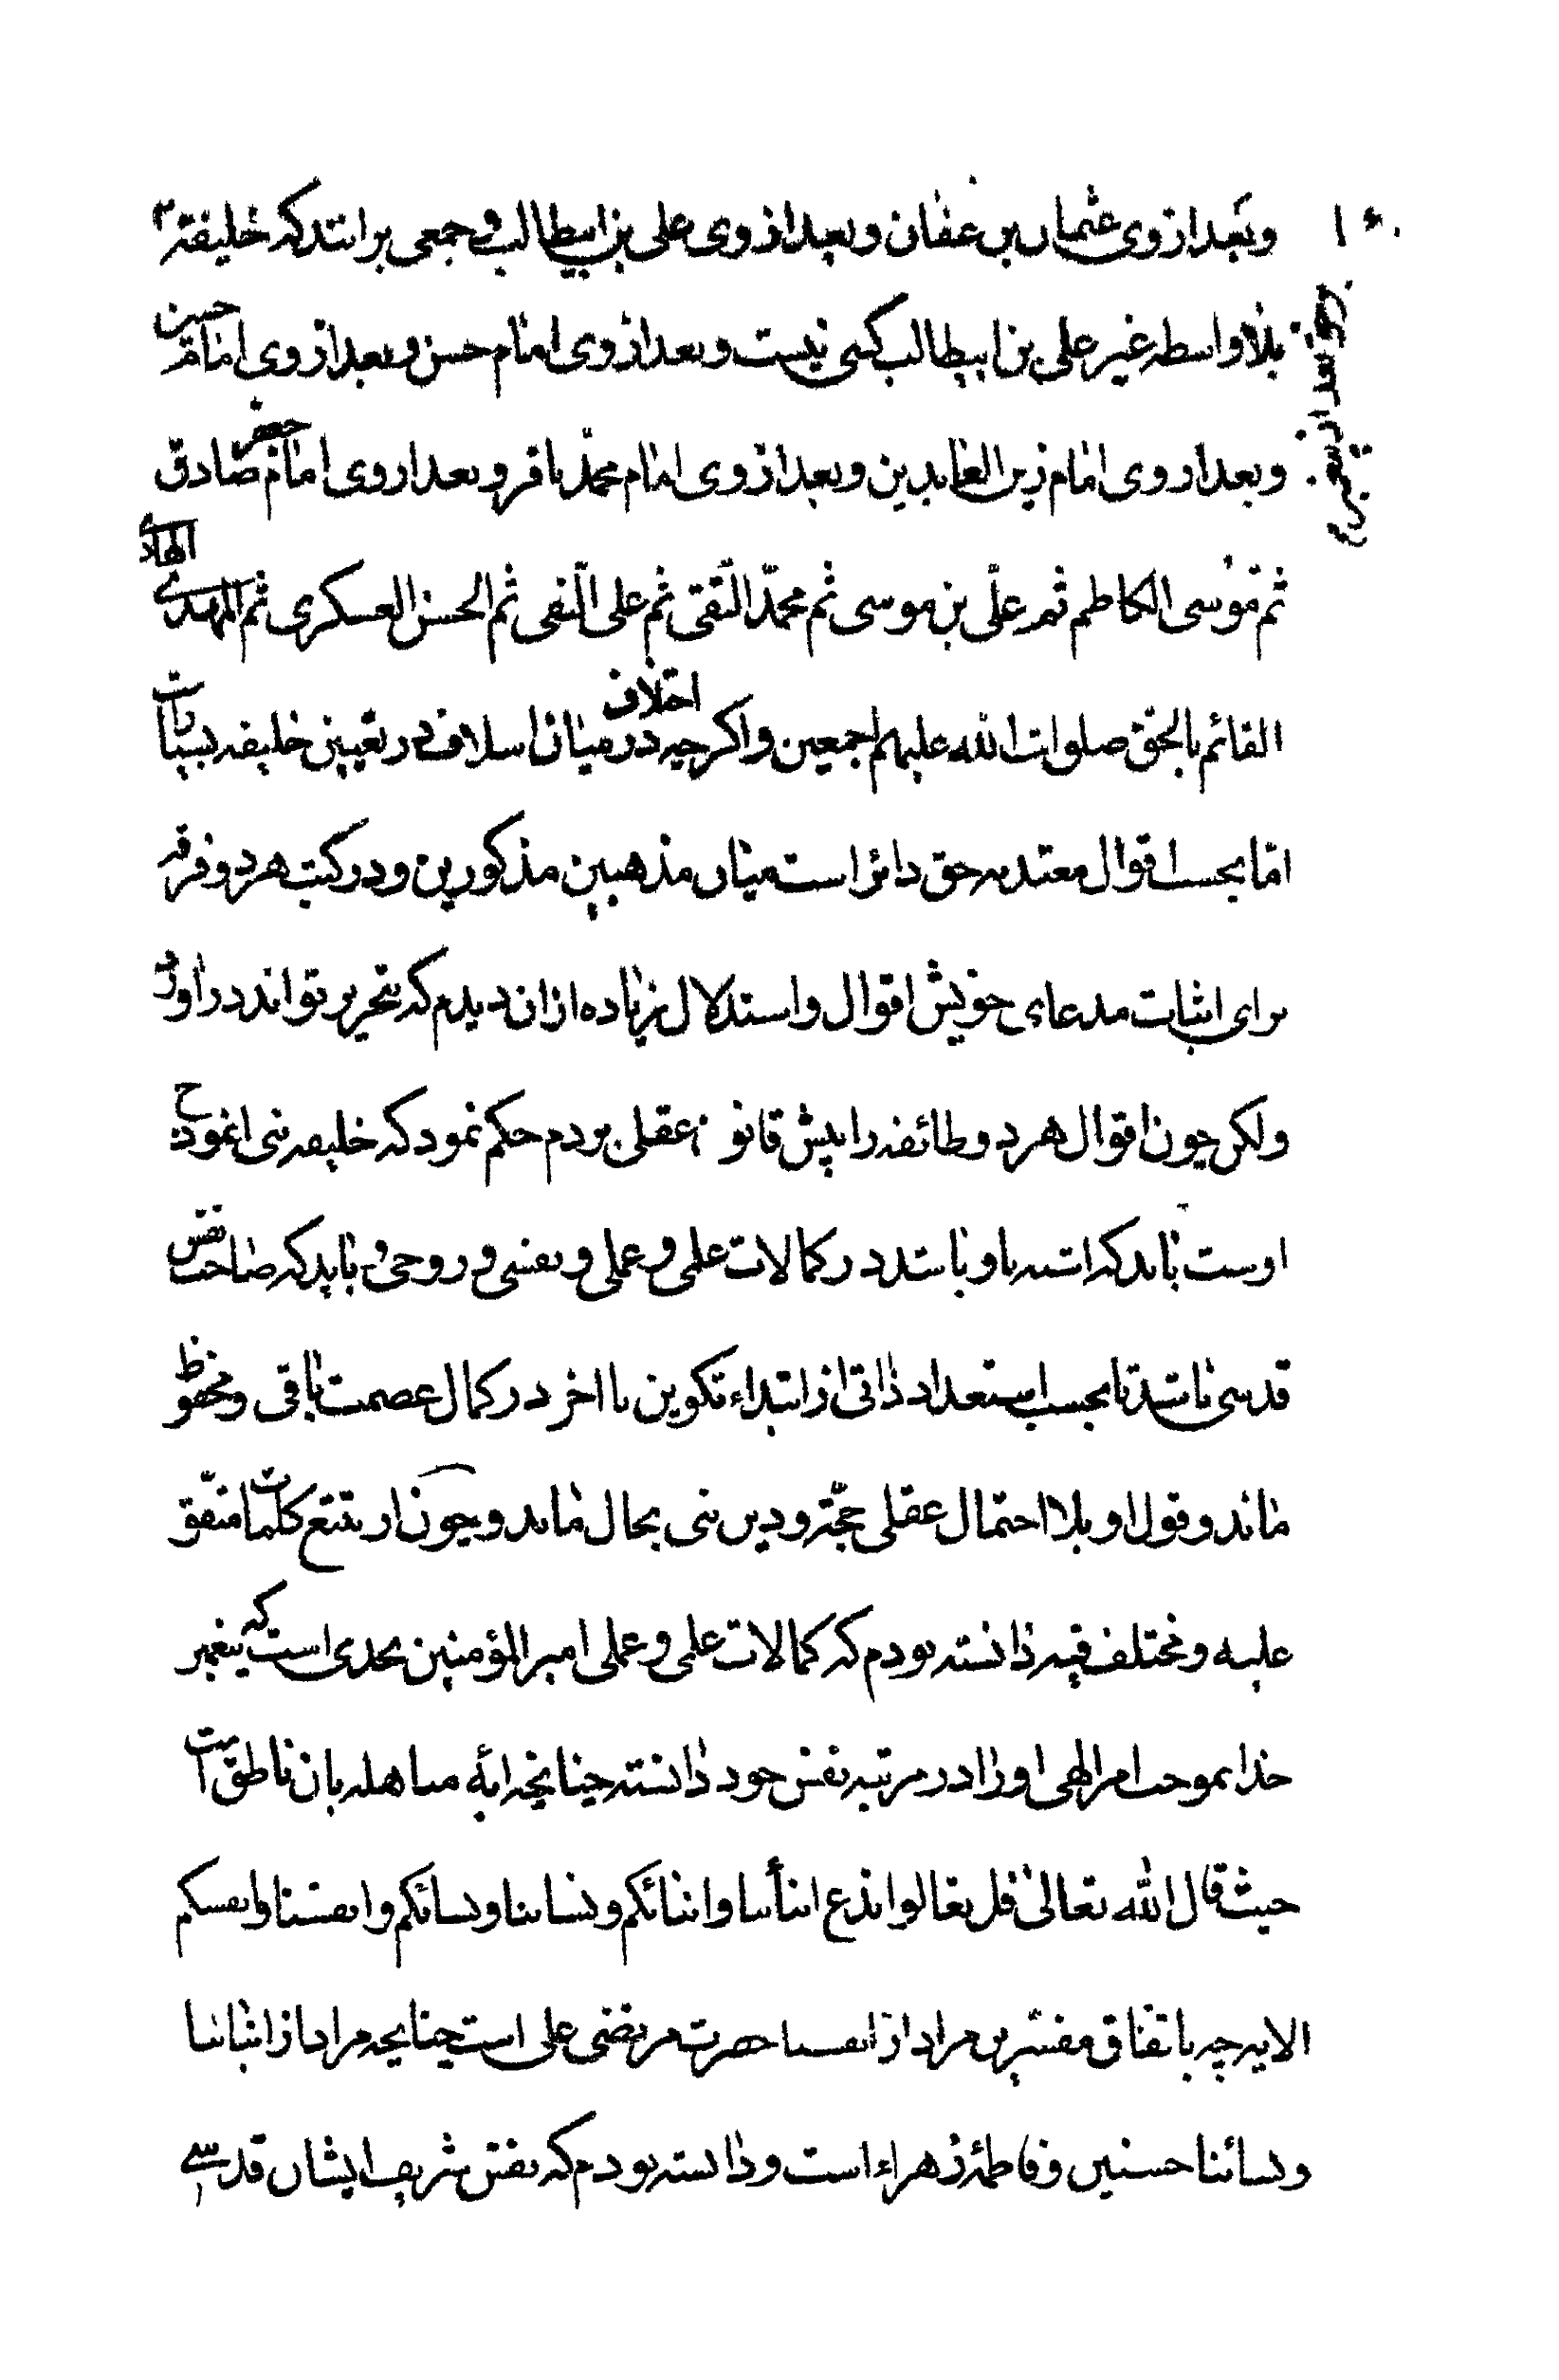 وبعد از وی عثمان بن عفان وبعد از وی علی بن ابیطالب و جمعی برانند که خلیفهٔ
بلاواسطه غیر علی بن ابیطالب کسی نیست وبعد از وی امام حسن وبعد از وی امام حسین
وبعد از وی امام زین العابدین وبعد از وی امام محمّد باقر وبعد از وی امام جعفر صادق
ثم موسی الکاظم ثم علّی بن موسی ثم محمّد التّقی ثم علی النّقی ثم الحسن العسکری ثم المهدی الهادی
القائم بالحق صلوات الله علیهم اجمعین واکرچه در میان اسلاف در تعیین خلیفه اختلاف بسیار است
امّا بحسب اقوال معتدبه حق دائر است میان مذهبین مذکورین ودر کتب هر دو فرقه
برای اثبات مدعای خویش اقوال واستدلال زیاده ازان دیدم که بتحریر تواند درآورد
ولکن چون اقوال هر دو طائفه را پیش قانون عقلی بردم حکم نمود که خلیفه نبی انموذج
اوست باید که اشبه باو باشد در کمالات علمی وعملی ونفسی وروحی وباید که صاحب نفس
قدسی باشد تا بحسب استعداد ذاتی از ابتداء تکوین تا اخر در کمال عصمت باقی ومحفوظ
ماند وقول او بلا احتمال عقلی حجّة ودین نبی بحال ماند وچون از تتبع کلمات متفّق
علیه ومختلف فیه دانسته بودم که کمالات علمی وعملی امیر المؤمنین بحدی است که پیغمبر
خدا بموجب امر الهی او را در مرتبه نفس خود دانسته چنانچه ایهٔ مباهله بان ناطق است
حیث قال الله تعالی قل تعالوا ندع ابنائنا وابنائکم ونسائنا ونسائکم وانفسنا وانفسکم
الایه چه باتفاق مفسّرین مراد از انفسنا حضرت مرتضی علی است چنانچه مراد از ابنائنا
ونسائنا حسنین وفاطمهٔ زهراء است ودانسته بودم که نفس شریف ایشان قدسی